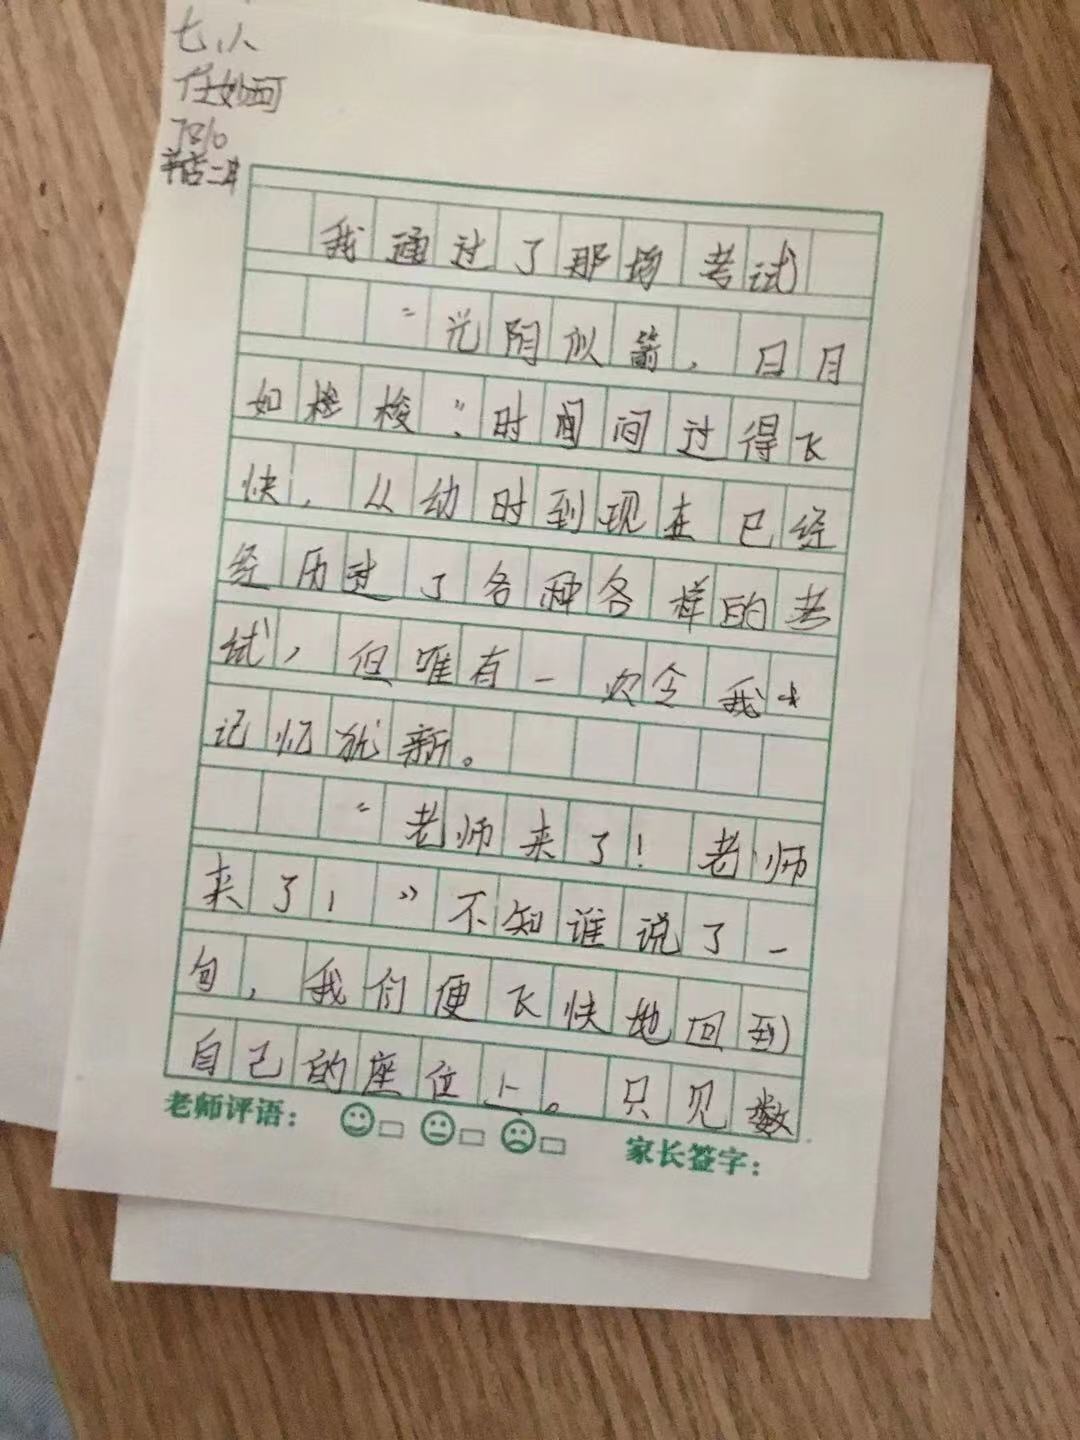 七.八
任妙可
7810
辛店二中
我通过了那场考试
“光阴似箭，日月
如梭梭”.时间间过得飞
快，从幼时到现在已经
经历过了各种各样的考
试，但唯有一次令我
记忆犹新。
“老师来了！老师
来了！”不知谁说了一
句，我们便飞快地回到
自己的座位上。只见数
老师评语： 家长签字：